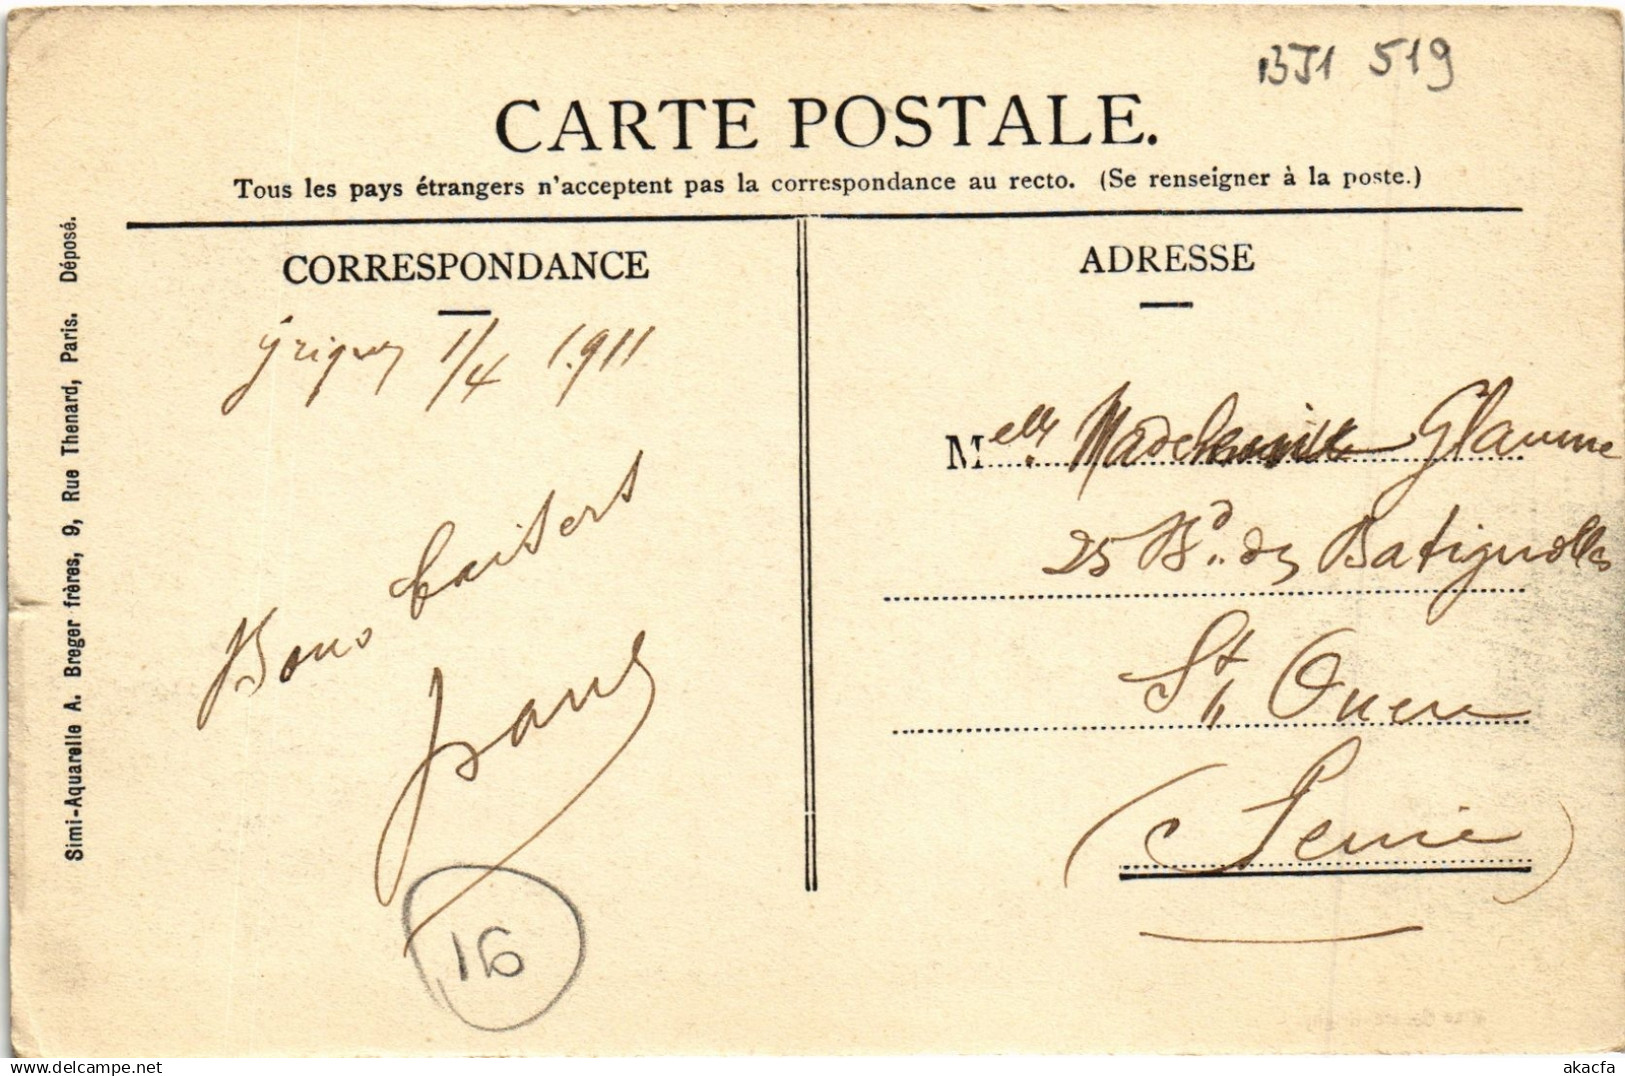 BJ1 519
CARTE POSTALE.
Tous les pays étrangers n'acceptent pas la correspondance au recto. (Se renseigner à la poste.)
CORRESPONDANCE
Grigny 1/4 1911
Bons baisers
ADRESSE
Melle Madeleine Glaume
25 Bd. des Batignolles
St Ouen
(Seine)
16
Simi-Aquarelle A. Breger frères, 9, Rue Thenard, Paris. Déposé.
akacfa